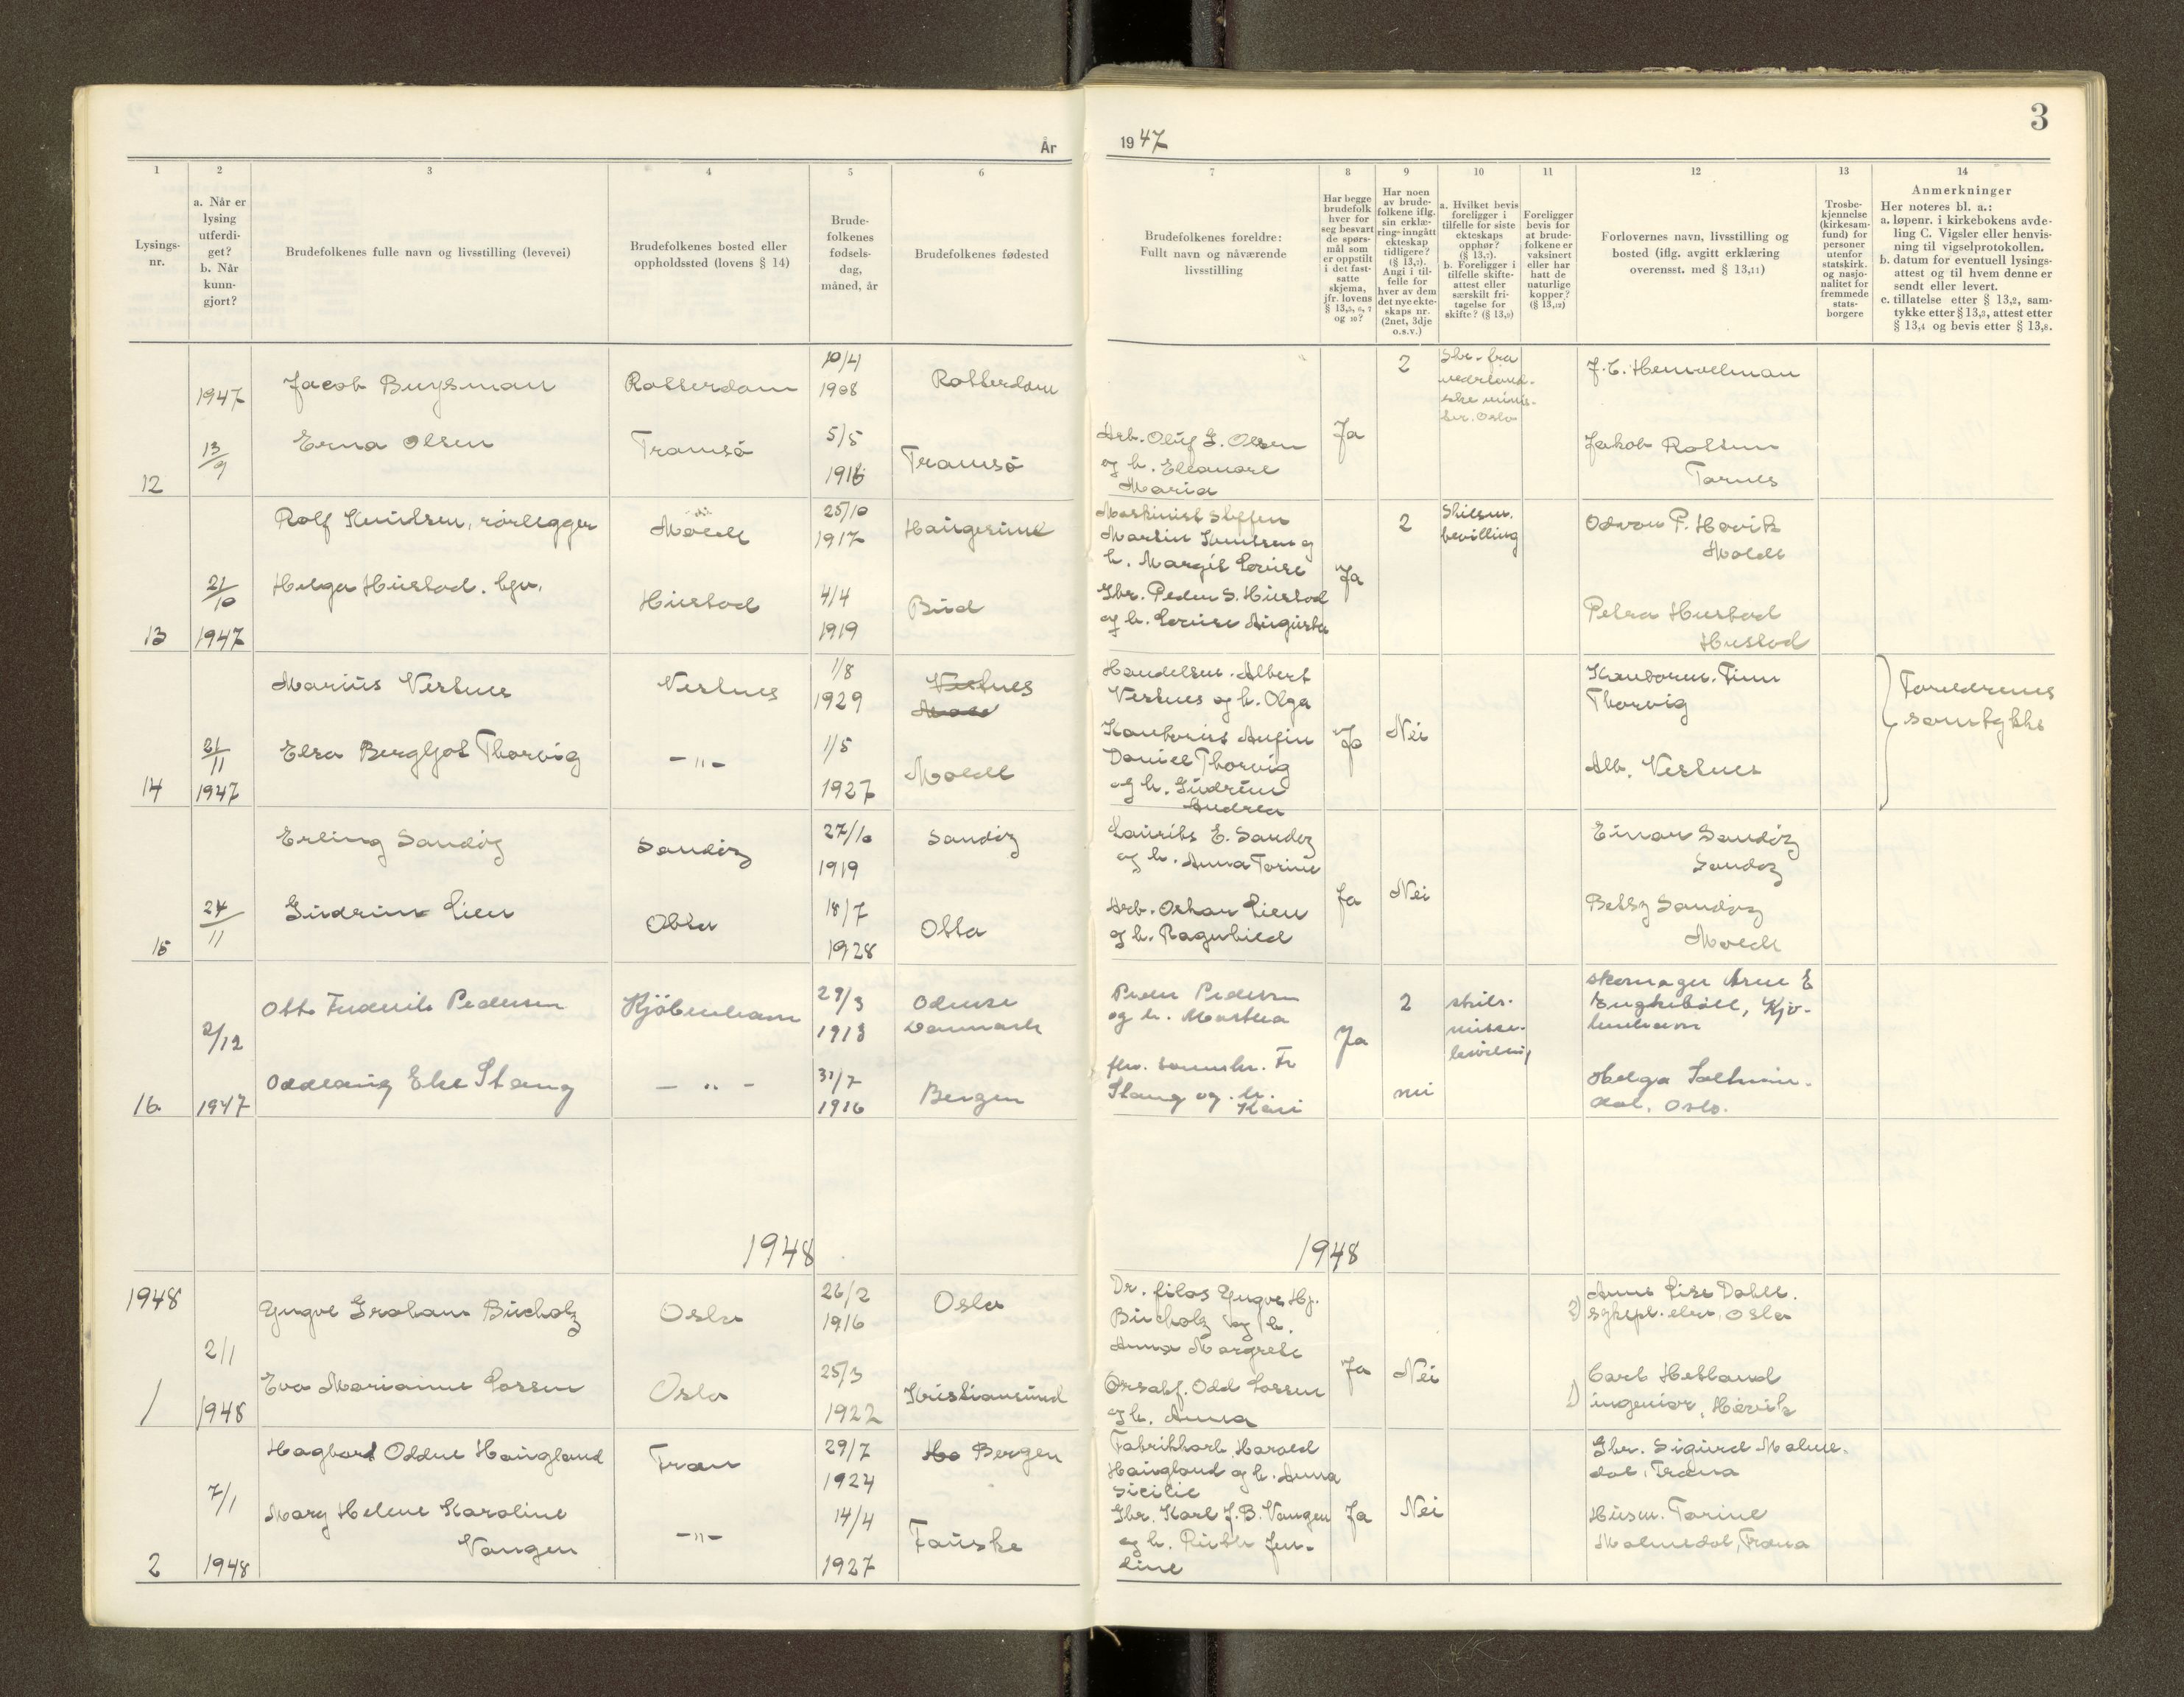 3
År
19 47
1
2
3
4
5
6
7
8
9
10
11
12
13
14
Lysings-
nr.
a. Når er
lysing
utferdi-
get?
b. Når
kunn-
gjort?
Brudefolkenes fulle navn og livsstilling (levevei)
Brudefolkenes bosted eller
oppholdssted (lovens § 14)
Brude-
folkenes
fødsels-
dag,
måned, år
Brudefolkenes fødested
Brudefolkenes foreldre:
Fullt navn og nåværende
livsstilling
Har begge
brudefolk
hver for
seg besvart
de spørs-
mål som
er oppstilt
i det fast-
satte
skjema,
jfr. lovens
§ 13,5, 6, 7
og 10?
Har noen
av brude-
folkene iflg.
sin erklæ-
ring inngått
ekteskap
tidligere?
(§ 13,7).
Angi i til-
felle for
hver av dem
det nye ekte-
skaps nr.
(2net, 3dje
o.s.v.)
a. Hvilket bevis
foreligger i
tilfelle for siste
ekteskaps
opphør?
(§ 13,7).
b. Foreligger i
tilfelle skifte-
attest eller
særskilt fri-
tagelse for
skifte? (§ 13,9)
Foreligger
bevis for
at brude-
folkene er
vaksinert
eller har
hatt de
naturlige
kopper?
(§ 13,12)
Forlovernes navn, livsstilling og
bosted (iflg. avgitt erklæring
overensst. med § 13,11)
Trosbe-
kjennelse
(kirkesam-
fund) for
personer
utenfor
statskirk.
og nasjo-
nalitet for
fremmede
stats-
borgere
Anmerkninger
Her noteres bl. a.:
a. løpenr. i kirkebokens avde-
ling C. Vigsler eller henvis-
ning til vigselprotokollen.
b. datum for eventuell lysings-
attest og til hvem denne er
sendt eller levert.
c. tillatelse etter § 13,2, sam-
tykke etter § 13,3, attest etter
§ 13,4 og bevis etter § 13,8.
12
1947
13/9
Jacob Buysman
Rotterdam
10/4
1908
Rotterdam
2
Skr. fra
nederland-
ske minis-
ter. Oslo
Erna Olsen
Tromsö
5/5
1916
Tromsö
Arb. Oluf G. Olsen
og h. Eleanore
Maria
Ja
Jakob Rotsun
Tornes
13
21/10
1947
Rolf Knudsen, rørlegger
Molde
25/10
1917
Haugesund
Maskinist Steffen
Martin Knudsen og
h. Margit Louise
Ja
2
Skilsm.
bevilling
Odvar P. Hovik
Molde
Helga Hustad. hjv.
Hustad
4/4
1919
Bud
Gbr. Peder S. Hustad
og h. Louise Augusta
Petra Hustad
Hustad
14
21/11
1947
Marius Vestnes
Vestnes
1/8
1929
Vestnes
Handelsm. Albert
Vestnes og h. Olga
Ja
Nei
Kontorm. Finn
Thorvig
Foreldrenes
samtykke
Elsa Bergljot Thorvig
- " -
1/5
1927
Molde
Daniel Thorvig
og h. Gudrun
Andrea
Alb. Vestnes
15
24/11
Erling Sandøy
Sandöy
27/10
1919
Sandöy
Laurits E. Sandøy
og h. Anna Torine
Ja
Nei
Einar Sandöy
Sandøy
Gudrun Lien
Otta
18/7
1928
Otta
Arb. Oskar Lien
og h. Ragnhild
Betsy Sandöy
Molde
16.
2/12
1947
Otto Frederik Pedersen
Kjöbenhavn
29/3
1913
Odense
Danmark
Peder Pedersen
og h. Martha
Ja
2
skils-
misse-
bevilling
skomager Arne E
Kjø-
benhavn
Oddlaug Else Stang
- " -
31/7
1916
Bergen
Stang og h.
Kari
nei
Helga
dal, Oslo.
1948
1948
1948
1
2/1
1948
Yngve Graham Bucholz
Oslo
26/2
1916
Oslo
Dr. filos Yngve Hj.
Bucholz og h.
Anna Margrete
Ja
Nei
2)
Anne Lise Dahle.
sykepl. elev, Oslo
Eva Marianne Lossen
Oslo
25/3
1922
Kristiansund
Odd Lossen
og h. Anna
1)
Carl Hetland
ingeniør, Høvik
2
7/1
1948
Hagbard Oddne Haugland
Fræn
29/7
1924
Ho Bergen
Fabrikkarb. Harald
Haugland og h. Anna
Sicilie
Ja
Nei
Gbr. Sigurd Malme-
dal, Fræna
Mary Helene Karoline
Vangen
- " -
14/4
1927
Fauske
Gbr. Karl J. B. Vangen
og h. Ruth Jen-
sine
Husm. Torine
Malmedal, Fræna